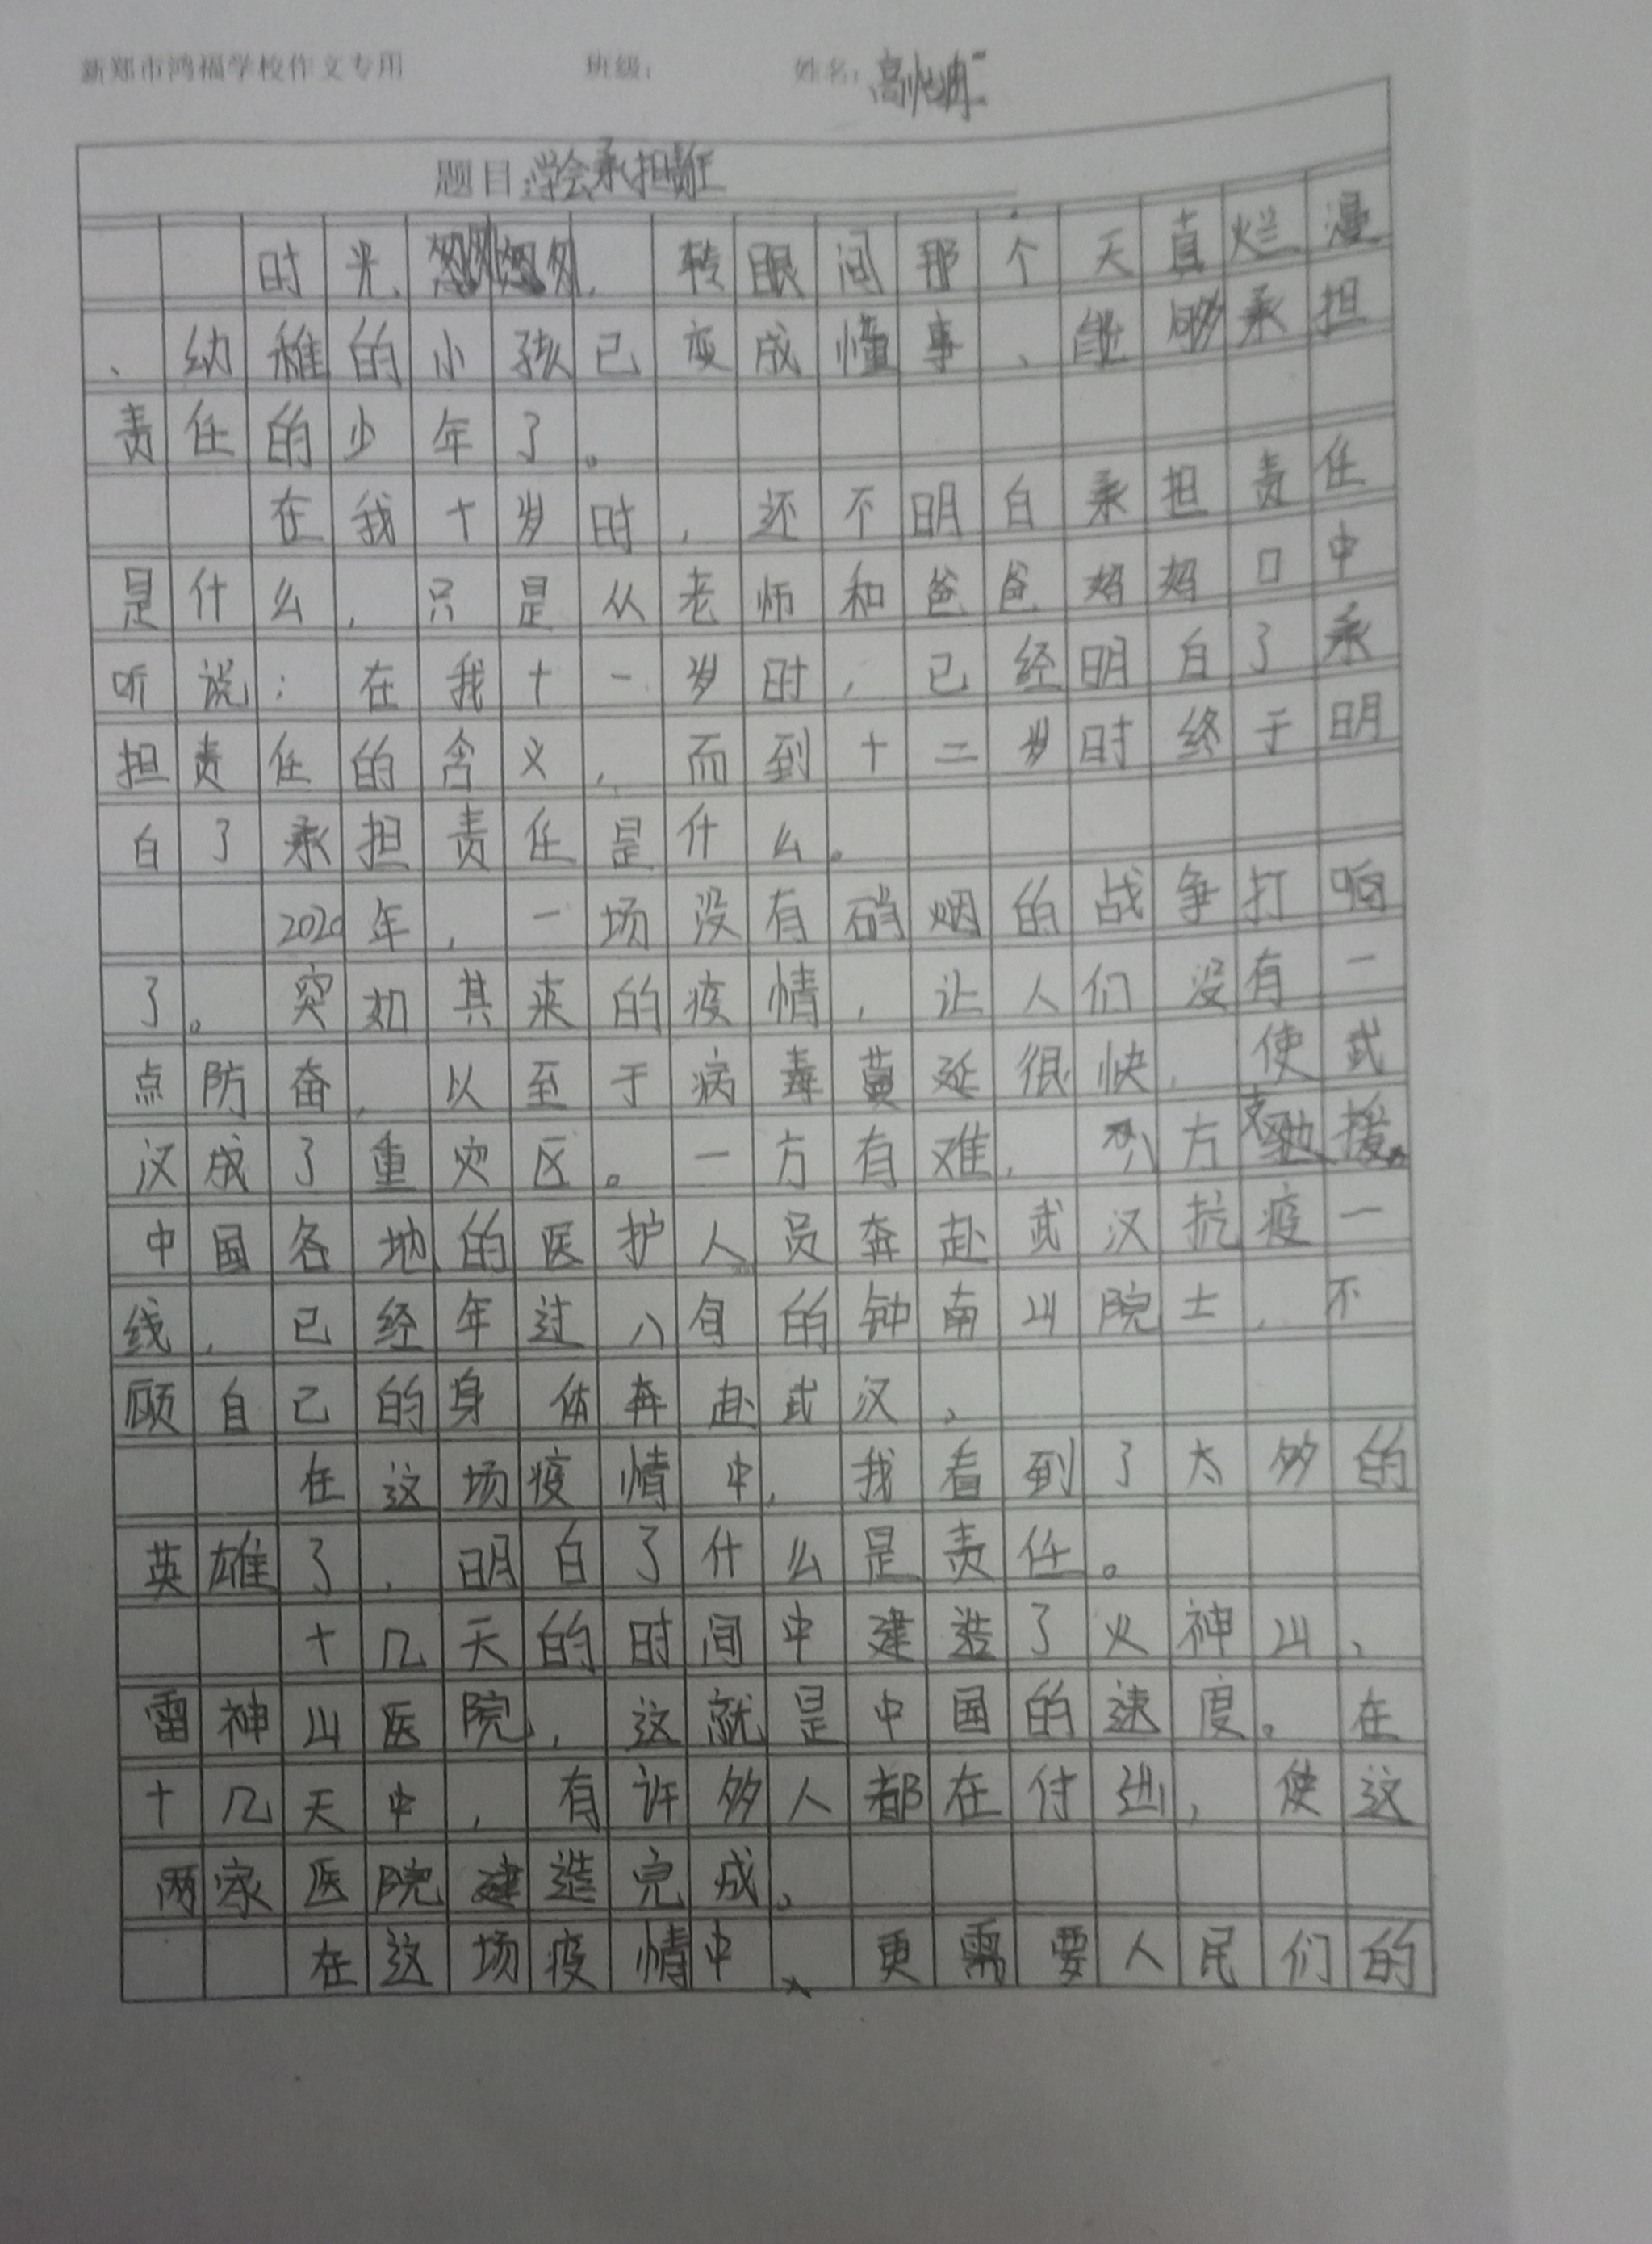 新郑市鸿福学校作文专用 班级： 姓名：高
题目：学会承担责任
时光匆匆，转眼间那个天真烂漫
、幼稚的小孩已变成懂事、能够承担
责任的少年了。
在我十岁时，还不明白承担责任
是什么，只是从老师和爸爸妈妈口中
听说；在我十一岁时，已经明白了承
担责任的含义，而到十二岁时终于明
白了承担责任是什么。
2020年，一场没有硝烟的战争打响
了。突如其来的疫情，让人们没有一
点防奋，以至于病毒蔓延很快，使武
汉成了重灾区。一方有难，八方支援。
中国各地的医护人员奔赴武汉抗疫一
线，已经年过八旬的钟南山院士，不
顾自己的身体奔赴武汉。
在这场疫情中，我看到了太多的
英雄了，明白了什么是责任。
十几天的时间中建造了火神山、
雷神山医院，这就是中国的速度。在
十几天中，有许多人都在付出，使这
两家医院建造完成。
在这场疫情中、更需要人民们的